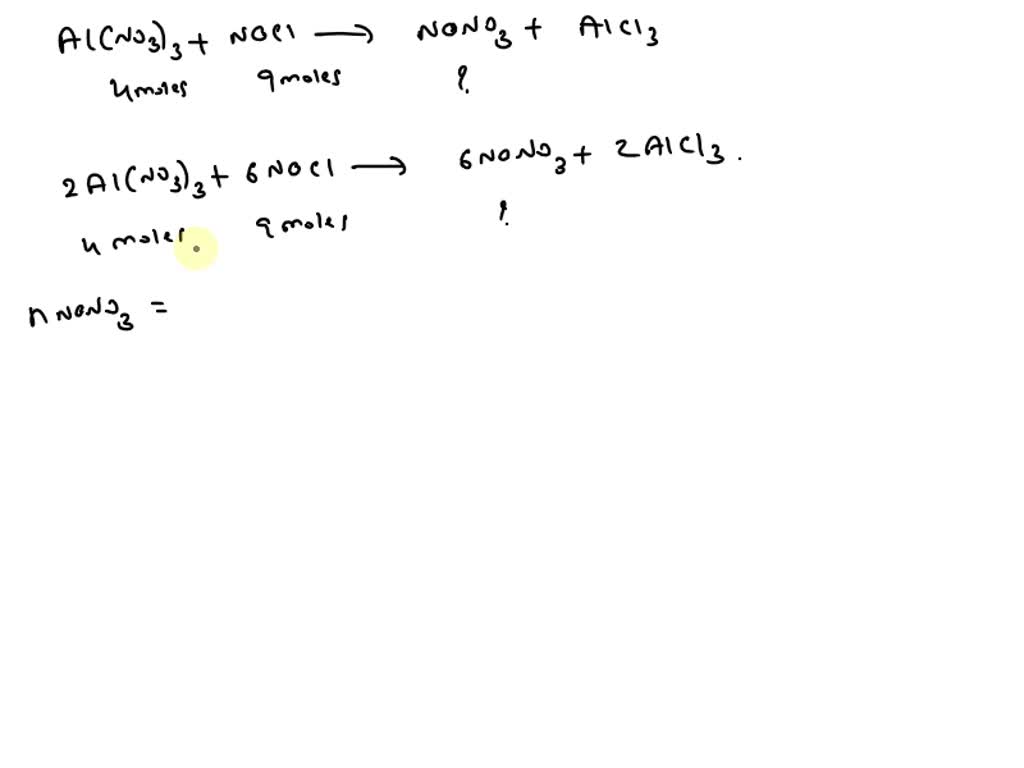 Al(NO3)3 + NaCl ⟶ NaNO3 + AlCl3
4moles 9moles ?
2Al(NO3)3 + 6NaCl ⟶ 6NaNO3 + 2AlCl3.
4 moles 9 moles ?
n NaNO3 =